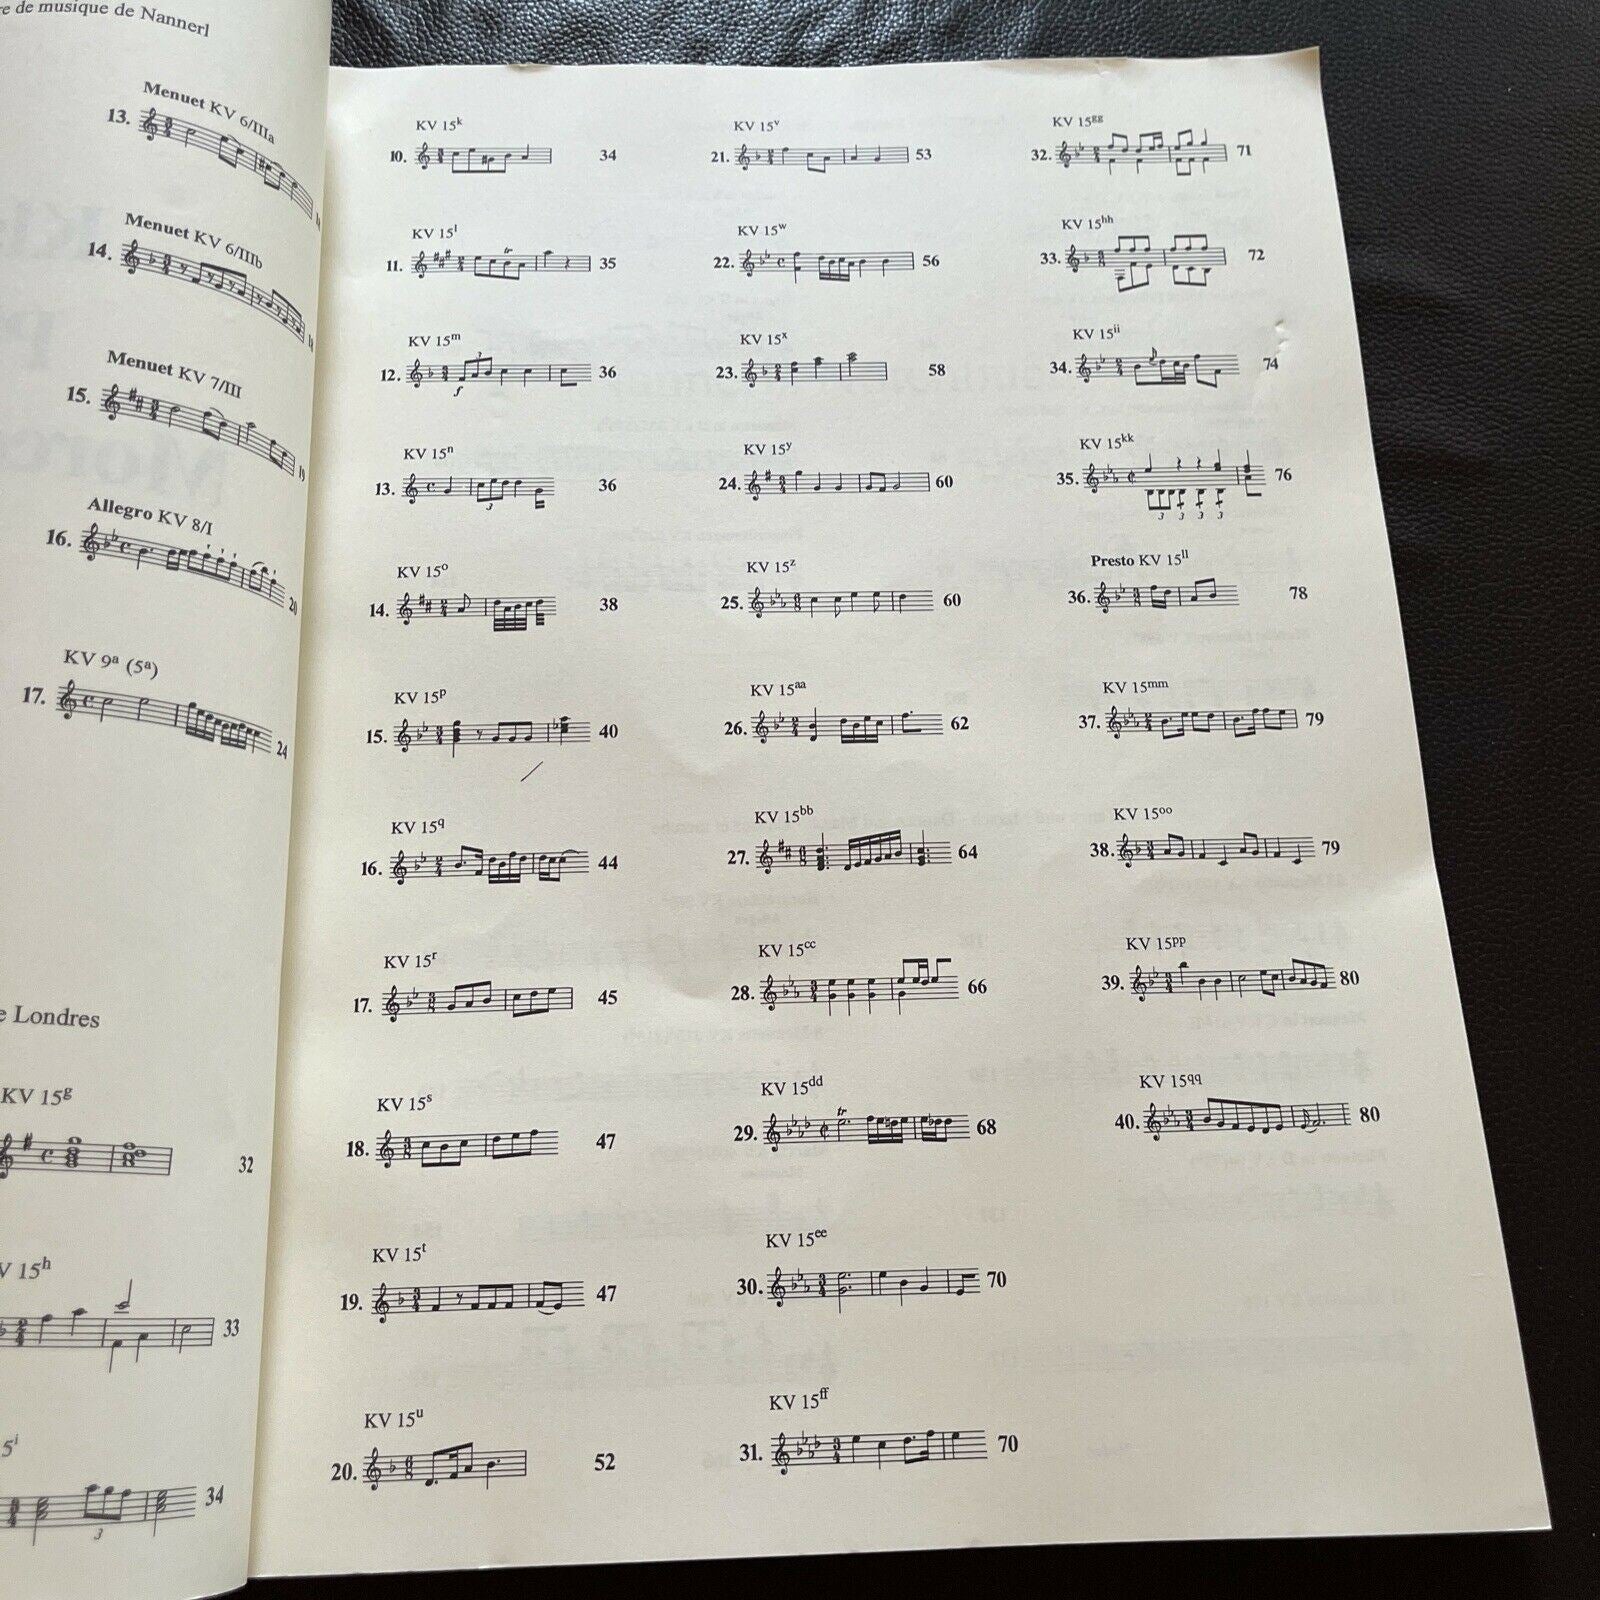 re de musique de Nannerl
Menuet KV 6/IIIa
13.
Menuet KV 6/IIIb
14.
Menuet KV 7/III
15.
19
Allegro KV 8/I
16.
20
KV 9a (5a)
17.
24
e Londres
KV 15g
32
V 15h
33
5i
3
34
KV 15k
10.
34
KV 15l
11.
tr
35
KV 15m
12.
3
f
36
KV 15n
13.
3
36
KV 15o
14.
38
KV 15p
15.
40
KV 15q
16.
44
KV 15r
17.
45
KV 15s
18.
47
KV 15t
19.
47
KV 15u
20.
52
KV 15v
21.
53
KV 15w
22.
56
KV 15x
23.
58
KV 15y
24.
60
KV 15z
25.
60
KV 15aa
26.
62
KV 15bb
27.
64
KV 15cc
28.
66
KV 15dd
29.
tr
68
KV 15ee
30.
70
KV 15ff
31.
70
KV 15gg
32.
71
KV 15hh
33.
72
KV 15ii
34.
74
KV 15kk
35.
3 3 3 3
76
Presto KV 15ll
36.
78
KV 15mm
37.
79
KV 15oo
38.
79
KV 15pp
39.
80
KV 15qq
40.
80